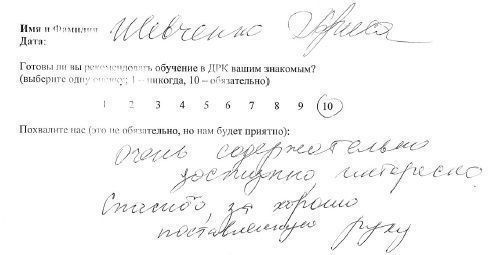 Имя и Фамилия Шевченко Эдуард
Дата:
Готовы ли вы рекомендовать обучение в ДРК вашим знакомым?
(выберите одну оценку: 1 – никогда, 10 – обязательно)
1 2 3 4 5 6 7 8 9 10
Похвалите нас (это не обязательно, но нам будет приятно):
очень содержательно
доступно, интересно
Спасибо за хорошо
поставленную руку